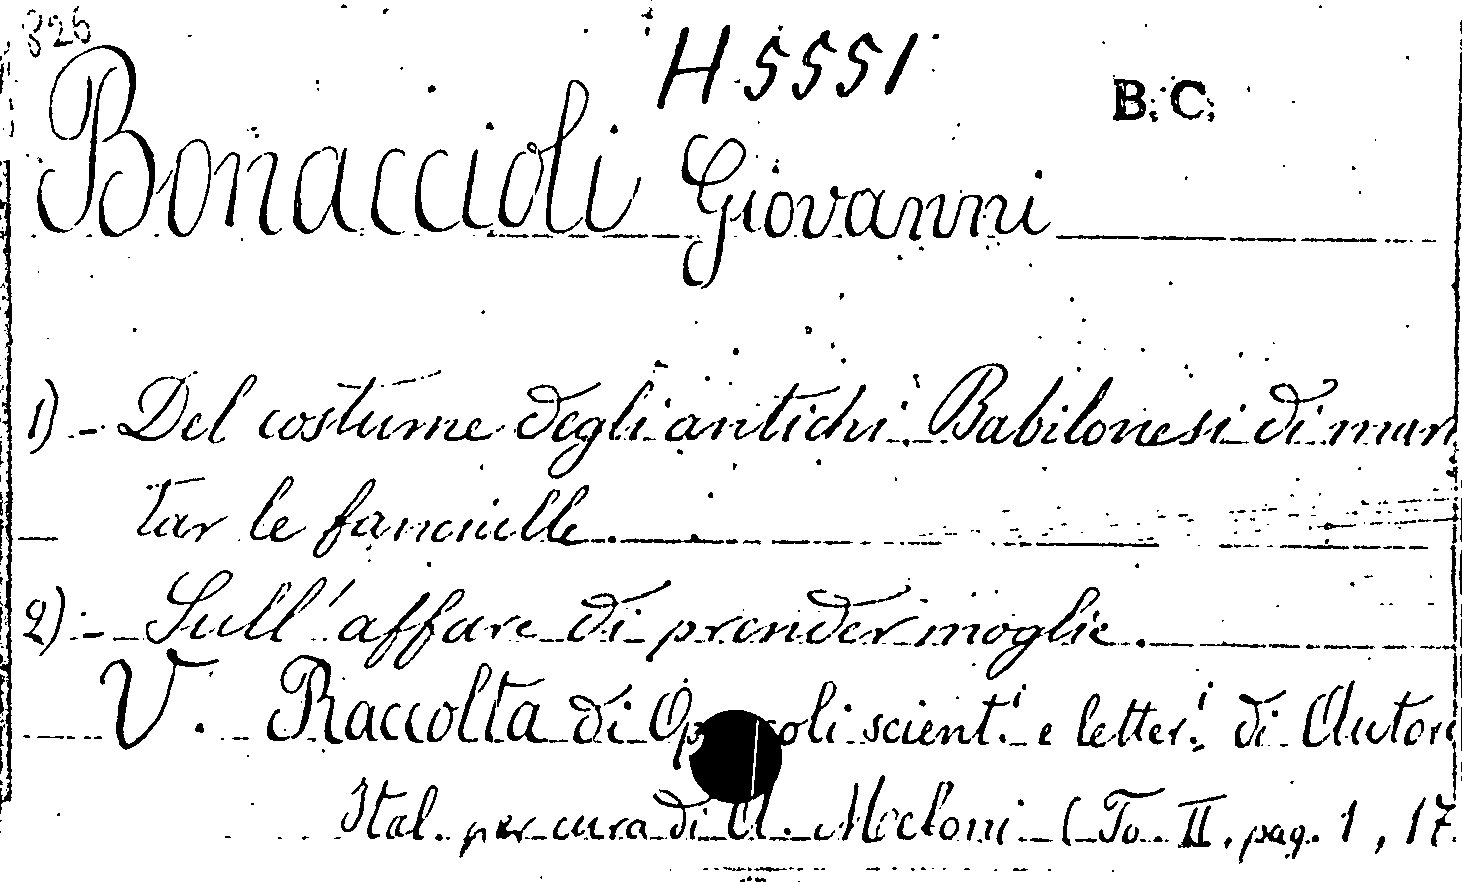 826
H 5551
B. C.
Bonaccioli Giovanni
1) - Del costume degli antichi Babilonesi di mari
tar le fanciulle
2) - Sull'affare di prender moglie.
V. Raccolta di scient.i e letter.i di Autori
Ital. per cura di A. Meloni (To. II. pag. 1, 17